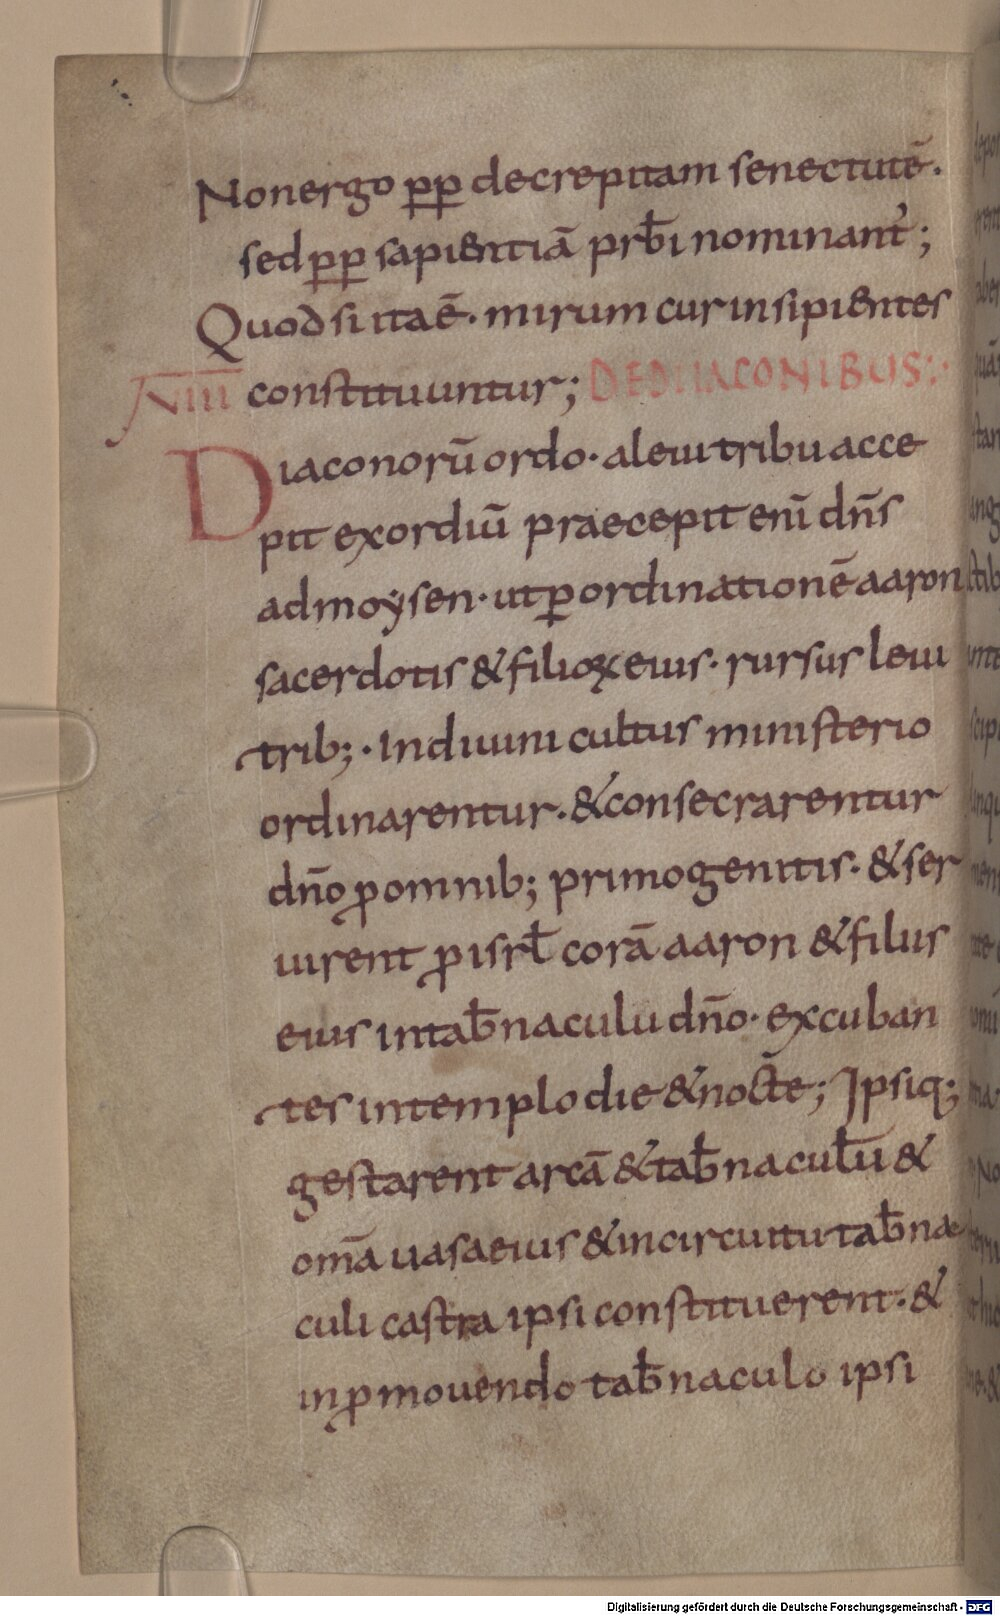 Non ergo pp decrepitam senectutē.
sed pp sapientiā prb̄i nominant̄;
Quod si ita ē. mirum cur insipientes
XIIII constituuntur; DE DIACONIBUS:.
Diaconorū ordo. a leui tribu acce
pit exordiū praecepit enī dn̄s
ad moysen. ut ꝑ ordinationē aaron
sacerdotis & filioꝝ eius. rursus leui
trib;. In diuini cultus ministerio
ordinarentur. & consecrarentur
dn̄o ꝓ omnib; primogenitis. & ser
uirent ꝓ isrł corā aaron & filiis
eius in tab̄naculu dn̄o. excuban
tes in templo die & nocte; Ipsiq;
gestarent arcā & tab̄naculū &
om̄a uasa eius & in circuitu tab̄na
culi castra ipsi constituerent. &
in ꝓmouendo tab̄naculo ipsi
Digitalisierung gefördert durch die Deutsche Forschungsgemeinschaft - DFG